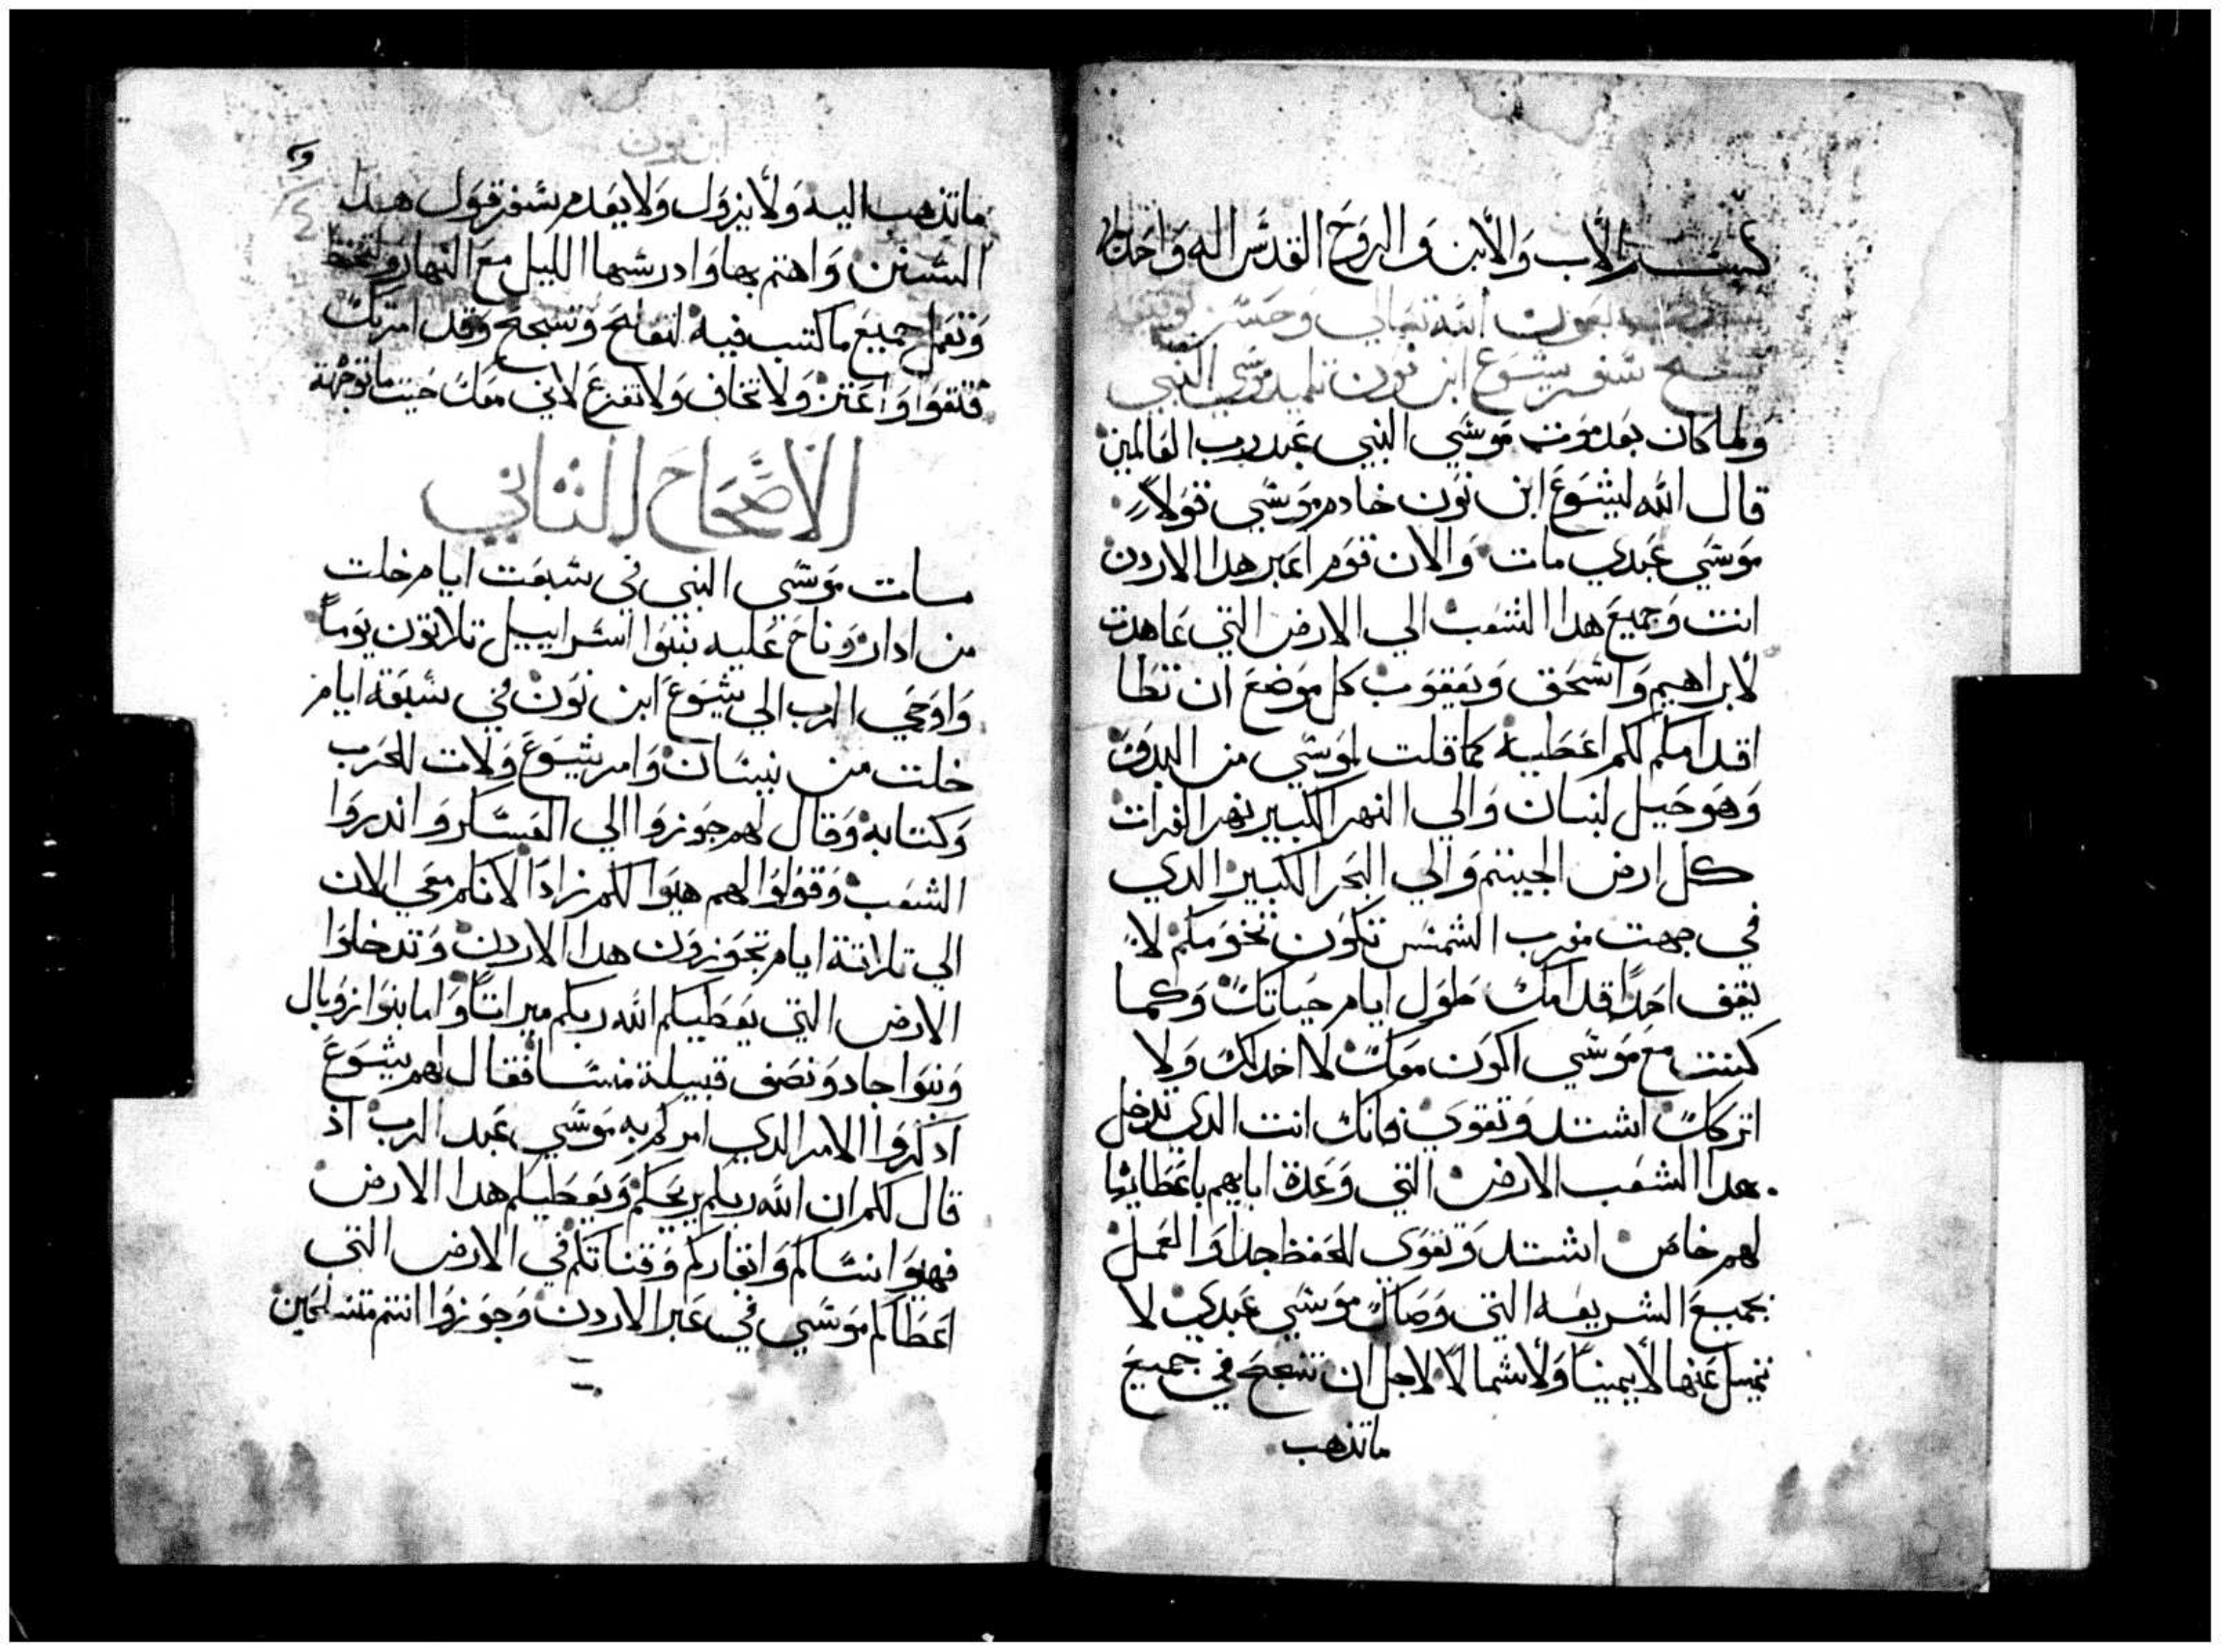 بسم الاب والابن والروح القدس اله واحد
بعون الله تعالي وحسن توفيقه
نسخ سفر يشوع ابن نون تلميد موسي النبي
ولما كان بعد موت موسي النبي عبد رب العالمين
قال الله ليشوع ابن نون خادم موسي قولاً
موسي عبدي مات والان قوم اعبر هدا الاردن
انت وجميع هدا الشعب الي الارض التي عاهدت
لابراهيم واسحق ويعقوب كل موضع ان تطا
اقدامكم لكم اعطيه كما قلت لموسي من
وهو جبل لبنان والي النهر الكبير نهر الفرات
كل ارض الجيتم والي البحر الكبير الدي
في جهت مغرب الشمس تكون تخومكم لا
يقف احداً قدامك طول ايام حياتك وكما
كنت مع موسي اكون معك لا اخدلك ولا
اتركك اشتد وتقوي فانك انت الدي تدخل
هدا الشعب الارض التي وعدة ابايهم باعطايها
لهم خاص اشتد وتقوي للحفظ جدا والعمل
بجميع الشريعه التي وصاك موسي عبدي لا
تميل عنها لا يميناً ولا شمالاً لاجل ان تنجح في جميع
ماتدهب
ابن نون
ماتدهب اليه ولا يزول ولا يعدم سفر قول هدا
السنن واهتم بها وادرسها الليل مع النهار ولتحفظ
وتعمل جميع ما كتب فيه لتفلح وتنجح وقد امرتك
فتقوا واعتز ولا تخاف ولا تفزع لاني معك حيت ماتوجهة
الاصحاح الثاني
مات موسي النبي في سبعت ايام خلت
من ادار وناح عليه بنوا اسراييل تلاتون يوماً
واوحي الرب الي يشوع ابن نون في سبعة ايام
خلت من نيسان وامر يشوع ولات للحرب
وكتابه وقال لهم جوزوا الي العسكر واندروا
الشعب وقولوا لهم هيوا لكم زاداً لانكم معي الان
الي تلاتة ايام تجوزون هدا الاردن وتدخلوا
الارض التي يعطيكم الله ربكم ميراتاً واما بنوا روبال
وبنوا جاد ونصف قبيلة منسا فقال لهم يشوع
ادكروا الامر الدي امركم به موسي عبد الرب اد
قال لكم ان الله ربكم يريحكم ويعطيكم هدا الارض
فهيوا نساكم وابقاركم وقناتكم في الارض التي
اعطاكم موسي في عبر الاردن وجوزوا انتم متسلحين